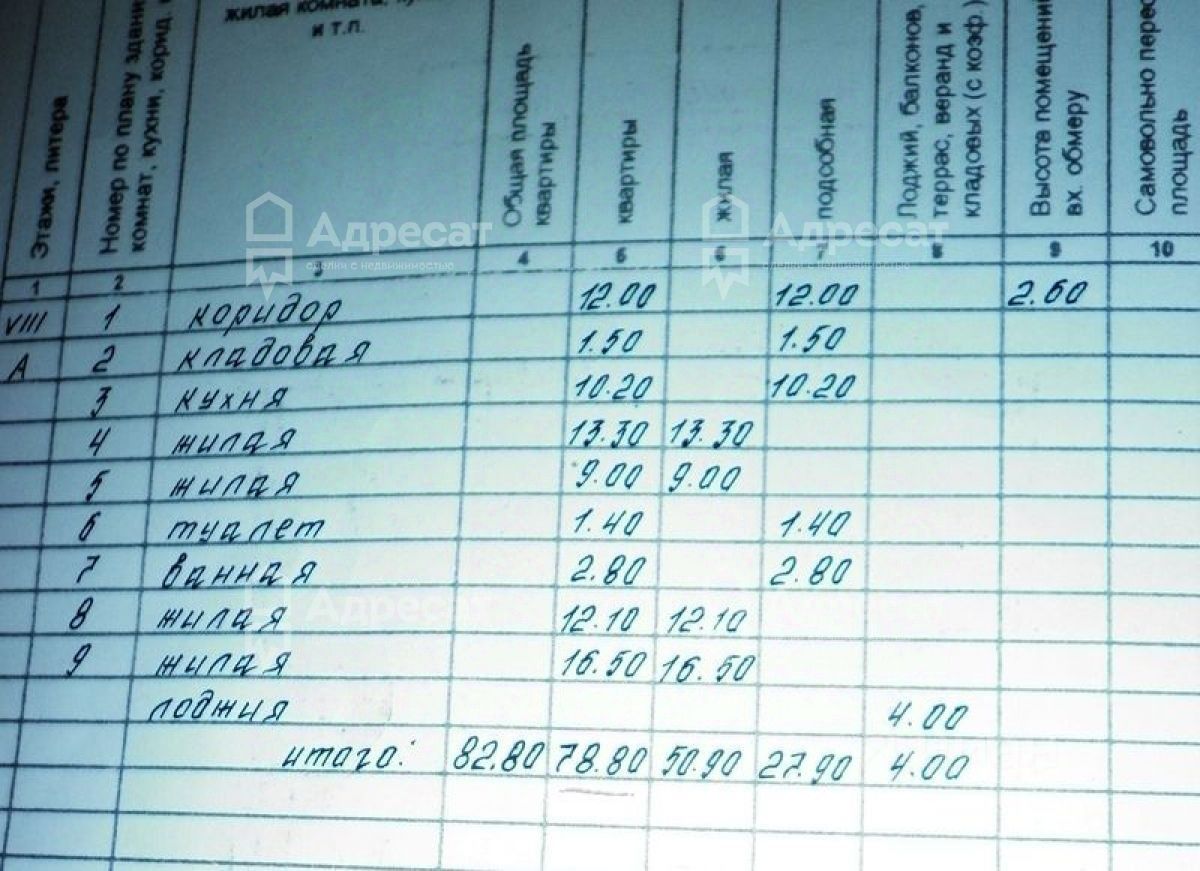 Этажи, литера
Номер по плану здани
комнат, кухни, корид,
жилая комната,
и т.п.
Общая площадь
квартиры
квартиры
жилая
подсобная
Лоджий, балконов,
террас, веранд и
кладовых (с коэф )
Высота помещени
вх. обмеру
Самовольно перео
площадь
Адресат
сделки с недвижимостью
Адресат
сделки с недвижимостью
1 2 4 5 6 7 8 9 10
VIII 1 коридор 12.00 12.00 2.60
А 2 кладовая 1.50 1.50
3 кухня 10.20 10.20
4 жилая 13.30 13.30
5 жилая 9.00 9.00
6 туалет 1.40 1.40
7 ванная 2.80 2.80
Адресат
Адресат
8 жилая 12.10 12.10
9 жилая 16.50 16.50
лоджия 4.00
итого: 82.80 78.80 50.90 27.90 4.00